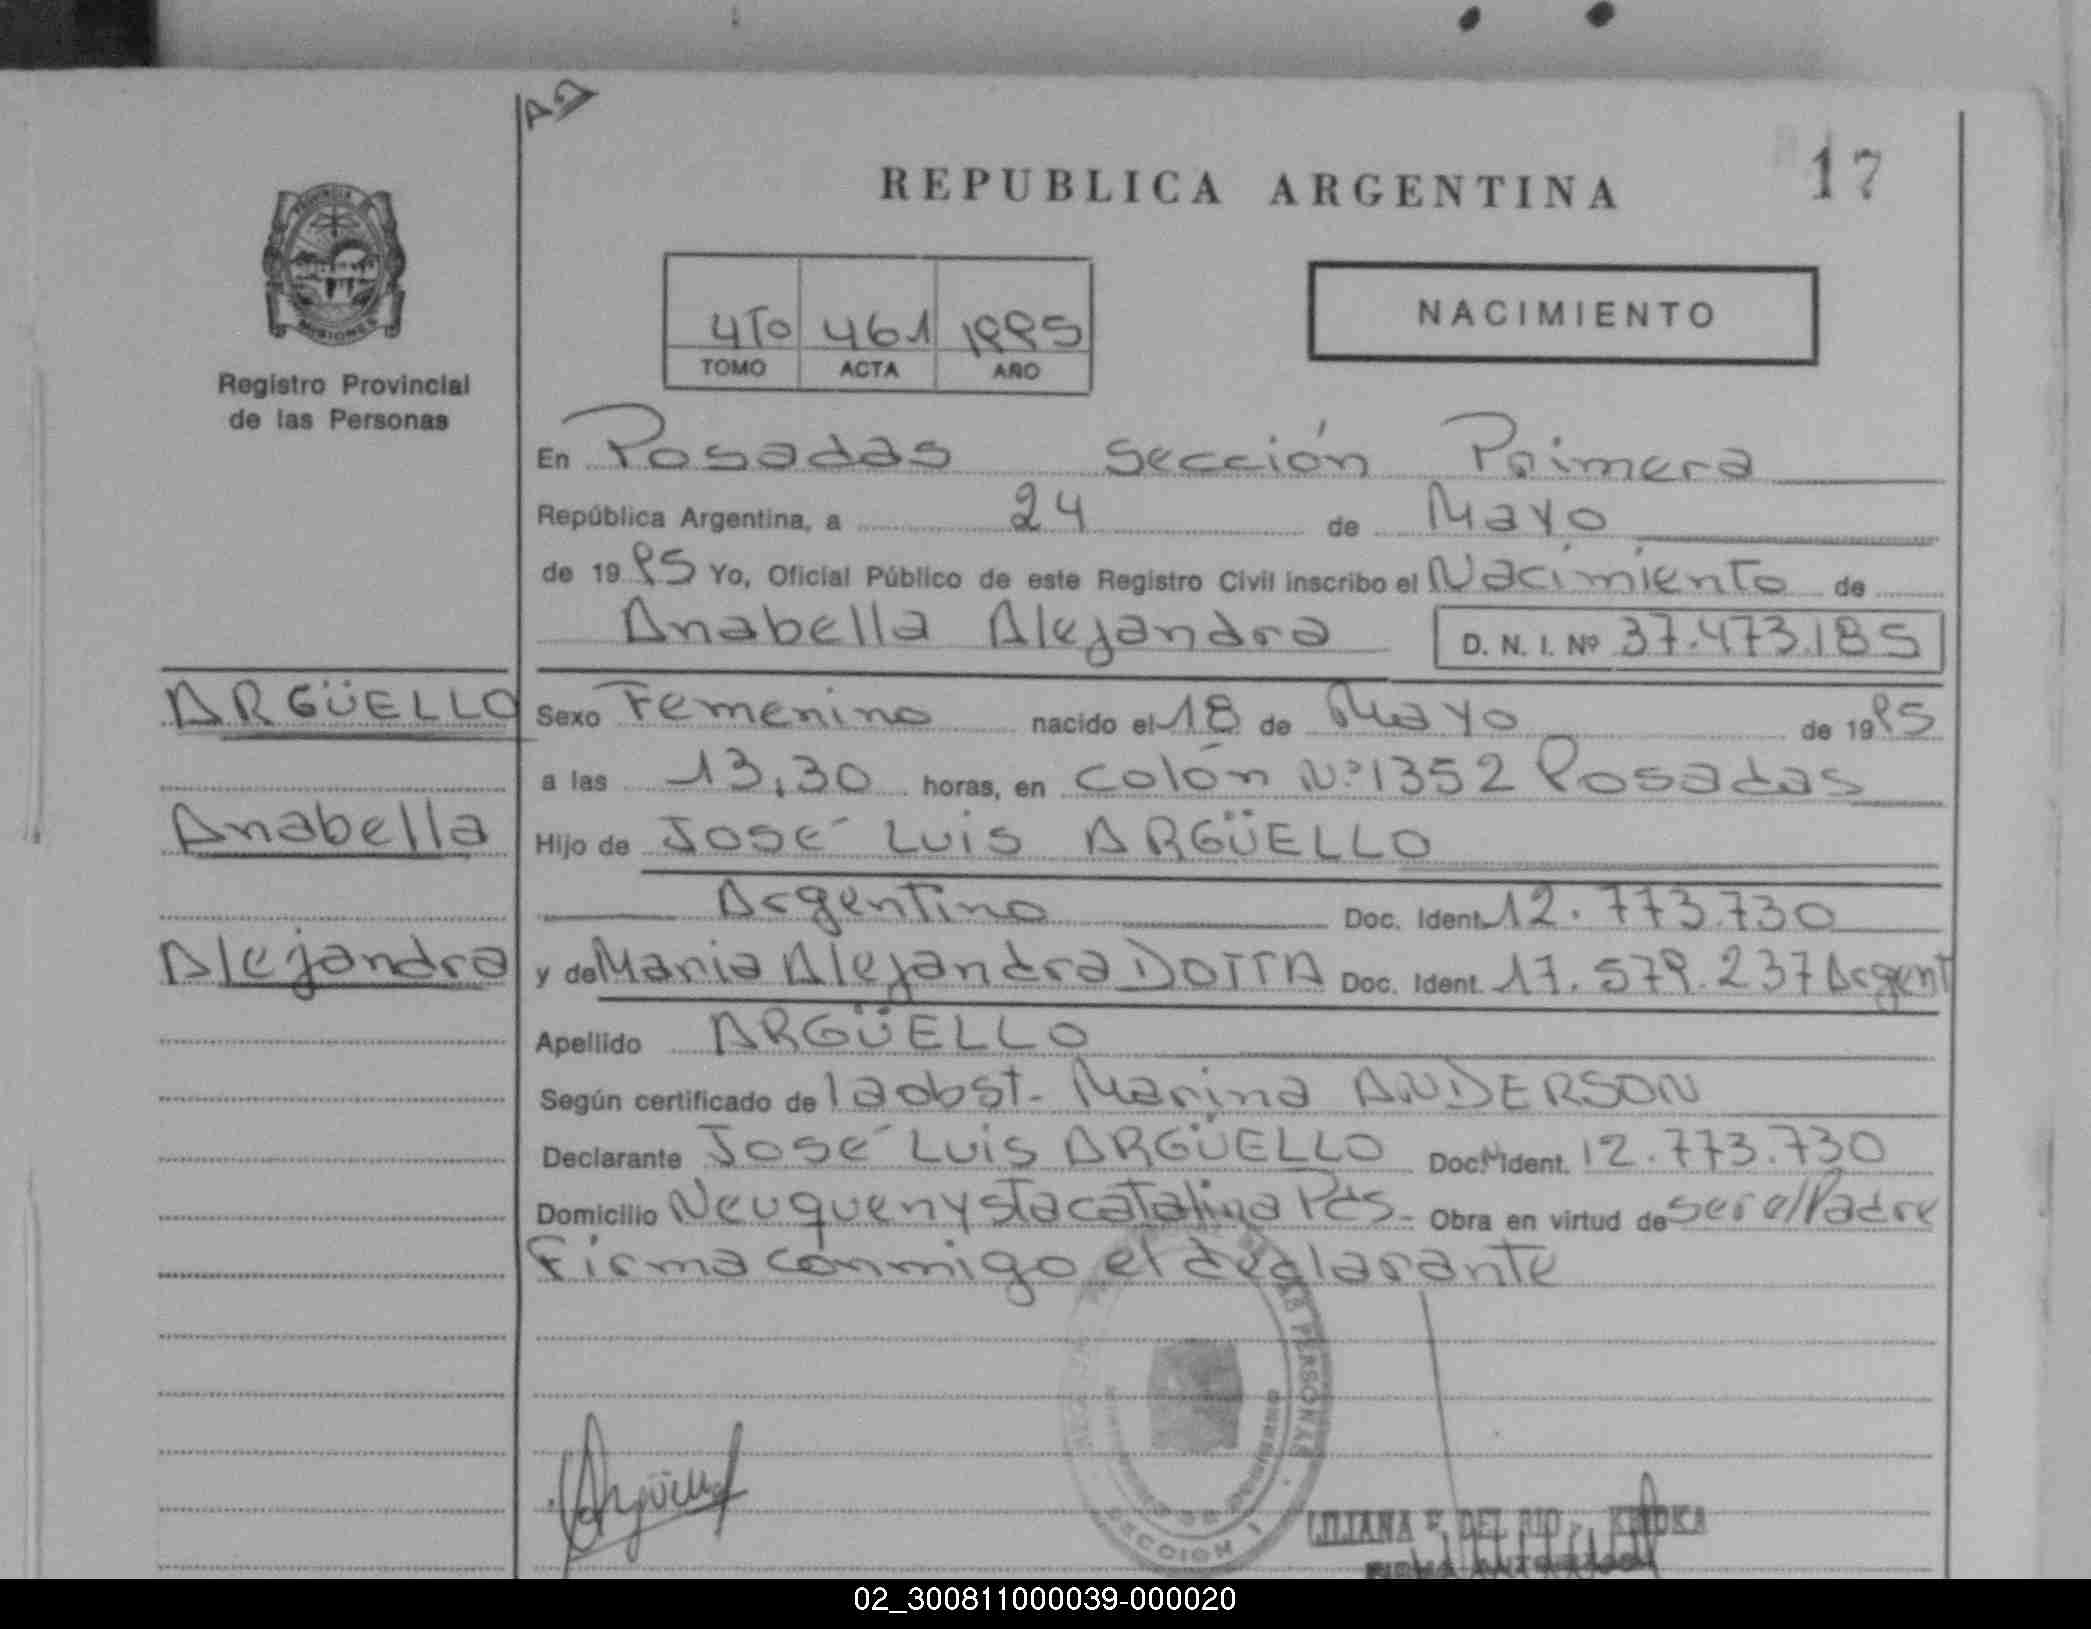 AD
REPUBLICA ARGENTINA
17
4To 461 1995
TOMO ACTA AÑO
NACIMIENTO
PROVINCIA
MISIONES
Registro Provincial
de las Personas
En Posadas Sección Primera
República Argentina, a 24 de Mayo
de 1995 Yo, Oficial Público de este Registro Civil inscribo el Nacimiento de
Anabella Alejandra D. N. I. Nº 37.473.185
ARGÜELLO
Anabella
Alejandra
Sexo Femenino nacido el 18 de Mayo de 1995
a las 13,30 horas, en Colón Nº 1352 Posadas
Hijo de José Luis ARGÜELLO
Argentino Doc. Ident. 12.773.730
y de Maria Alejandra DOTTA Doc. Ident. 17.579.237 Argent
Apellido ARGÜELLO
Según certificado de la obst. Marina ANDERSON
Declarante José Luis ARGÜELLO Doc. Ident. 12.773.730
Domicilio Neuquen y sta catalina Pds. Obra en virtud de ser el Padre
Firma conmigo el declarante
DE LAS PERSONAS
SECCION 1
Argüello
LILIANA F. DEL RIO
02_300811000039-000020